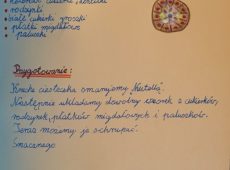 rodzynki
białe cukierki groszki
płatki migdałowe
paluszki
Przygotowanie:
Kruche ciasteczka smarujemy "Nutellą".
Następnie układamy dowolny wzorek z cukierków,
rodzynek, płatków migdałowych i paluszków.
Teraz możemy je schrupać.
Smacznego